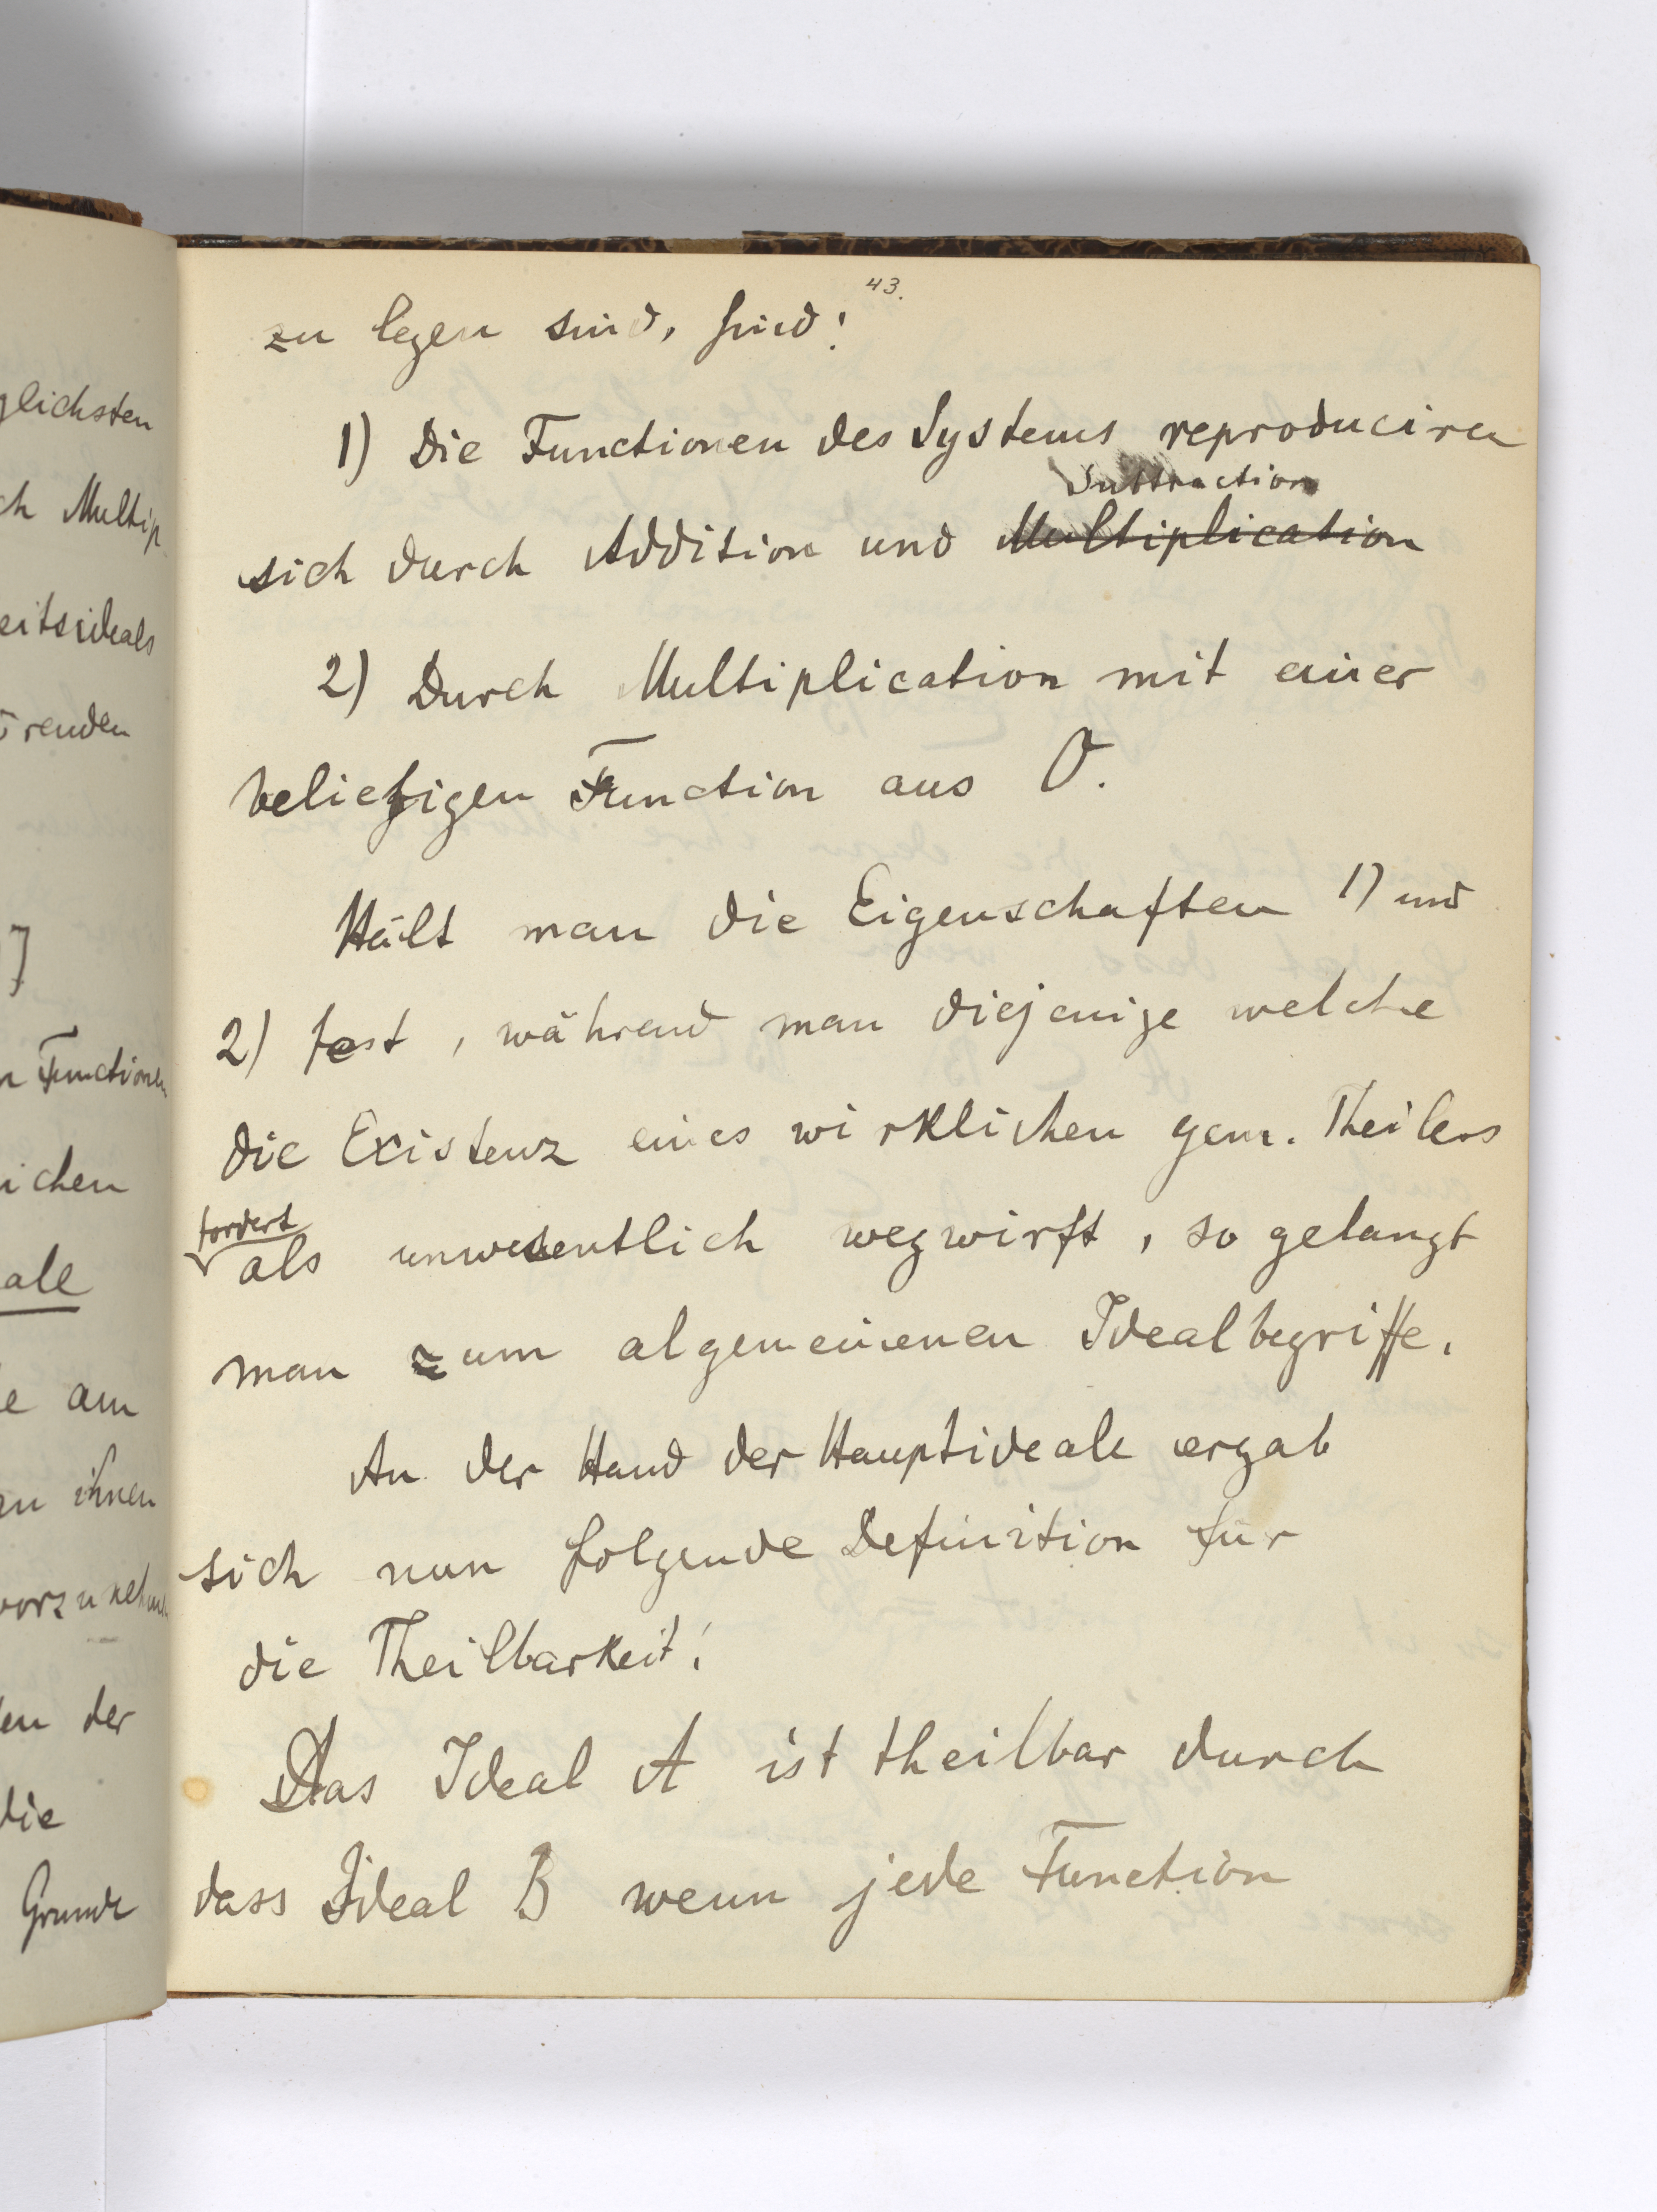 glichsten
ch Multip
eitsideals
renden
n Functionen
ichen
ale
e am
en ihnen
vorzunehm
en der
die
Grunde
43.
zu legen sind, sind:
1) Die Functionen des Systems reproduciren
Subtraction
sich durch Addition und Multiplication
2) Durch Multiplication mit einer
beliebigen Function aus O.
Hält man die Eigenschaften 1) und
2) fest, während man diejenige welche
die Existenz eines wirklichen gem. Theilers
fordert
als unwesentlich wegwirft, so gelangt
man zum algemeinenen Idealbegriffe.
An der Hand der Hauptideale ergab
sich nun folgende Definition für
die Theilbarkeit:
Das Ideal A ist theilbar durch
dass Ideal B wenn jede Function